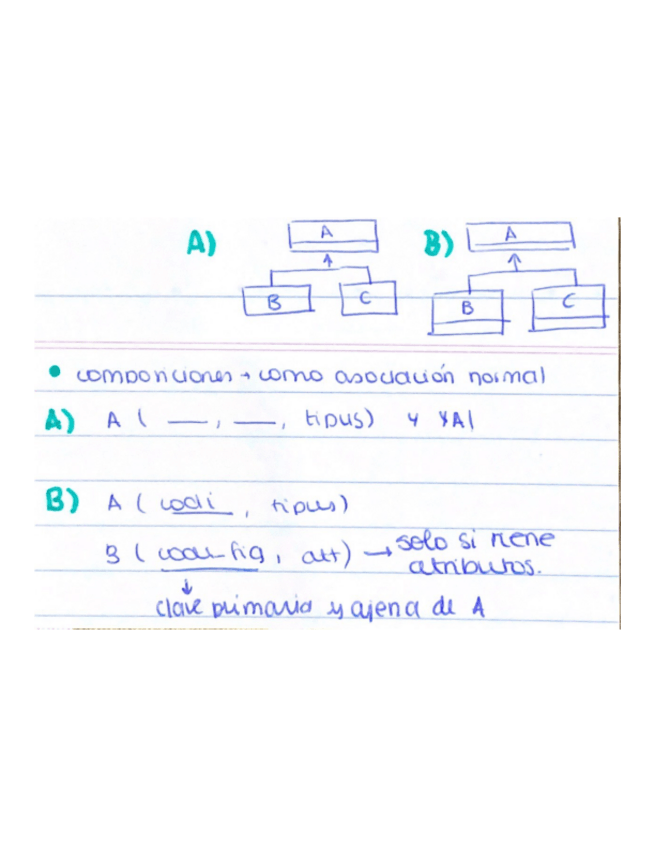 A) A B)  A
B C B C
• composiciones → como asociación normal
A) A ( __ , __ , tipus) y YA!
B) A ( codi , tipus)
B ( codi-fig , att) → solo si tiene
atributos.
clave primaria y ajena de A